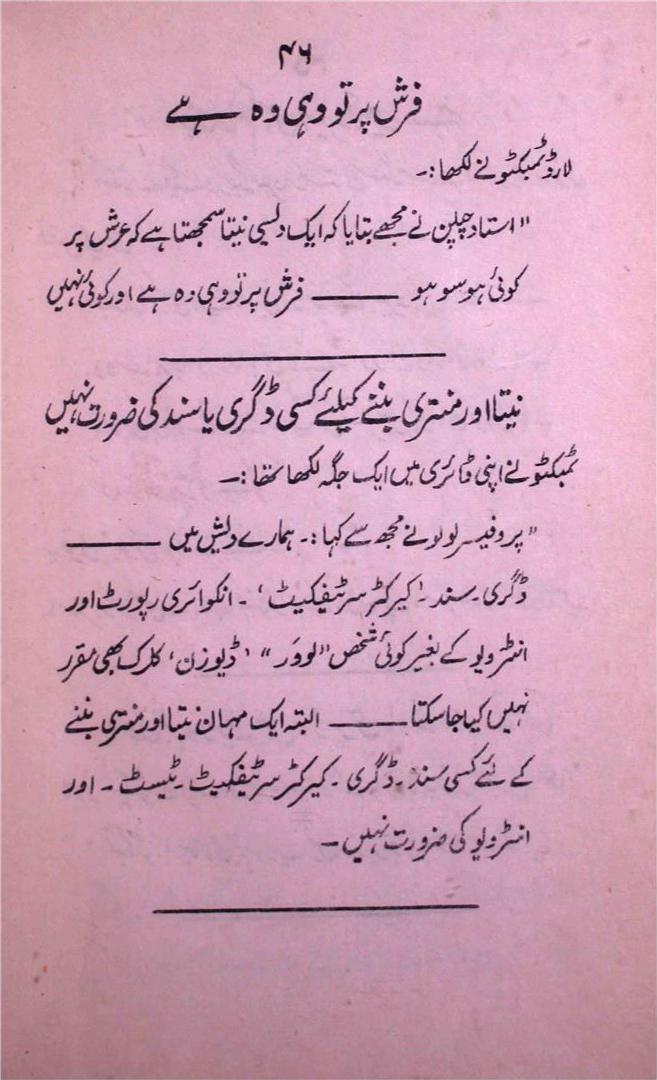 ۴۶
فرش پر تو وہی وہ ہے
لارڈ ٹمبکٹو نے لکھا :۔
"استاد چپلن نے مجھے بتایا کہ ایک دلیسی نیتا سمجھتا ہے کہ عرش پر
کوئی ہو سو ہو ——— فرش پر تو وہی وہ ہے اور کوئی نہیں
نیتا اور منتری بننے کیلئے کسی ڈگری یا سند کی ضرورت نہیں
ٹمبکٹو نے اپنی ڈائری میں ایک جگہ لکھا تھا :۔
"پروفیسر لولو نے مجھ سے کہا :۔ ہمارے دلیش میں ———
ڈگری۔ سند۔ 'کیرکٹر سرٹیفکیٹ'۔ انکوائری رپورٹ اور
انٹرویو کے بغیر کوئی شخص "لوور" 'ڈیوزن' کلرک بھی مقرر
نہیں کیا جا سکتا ——— البتہ ایک مہان نیتا اور منتری بننے
کے لئے کسی سند۔ ڈگری۔ کیرکٹر سرٹیفکیٹ۔ ٹیسٹ۔ اور
انٹرویو کی ضرورت نہیں۔